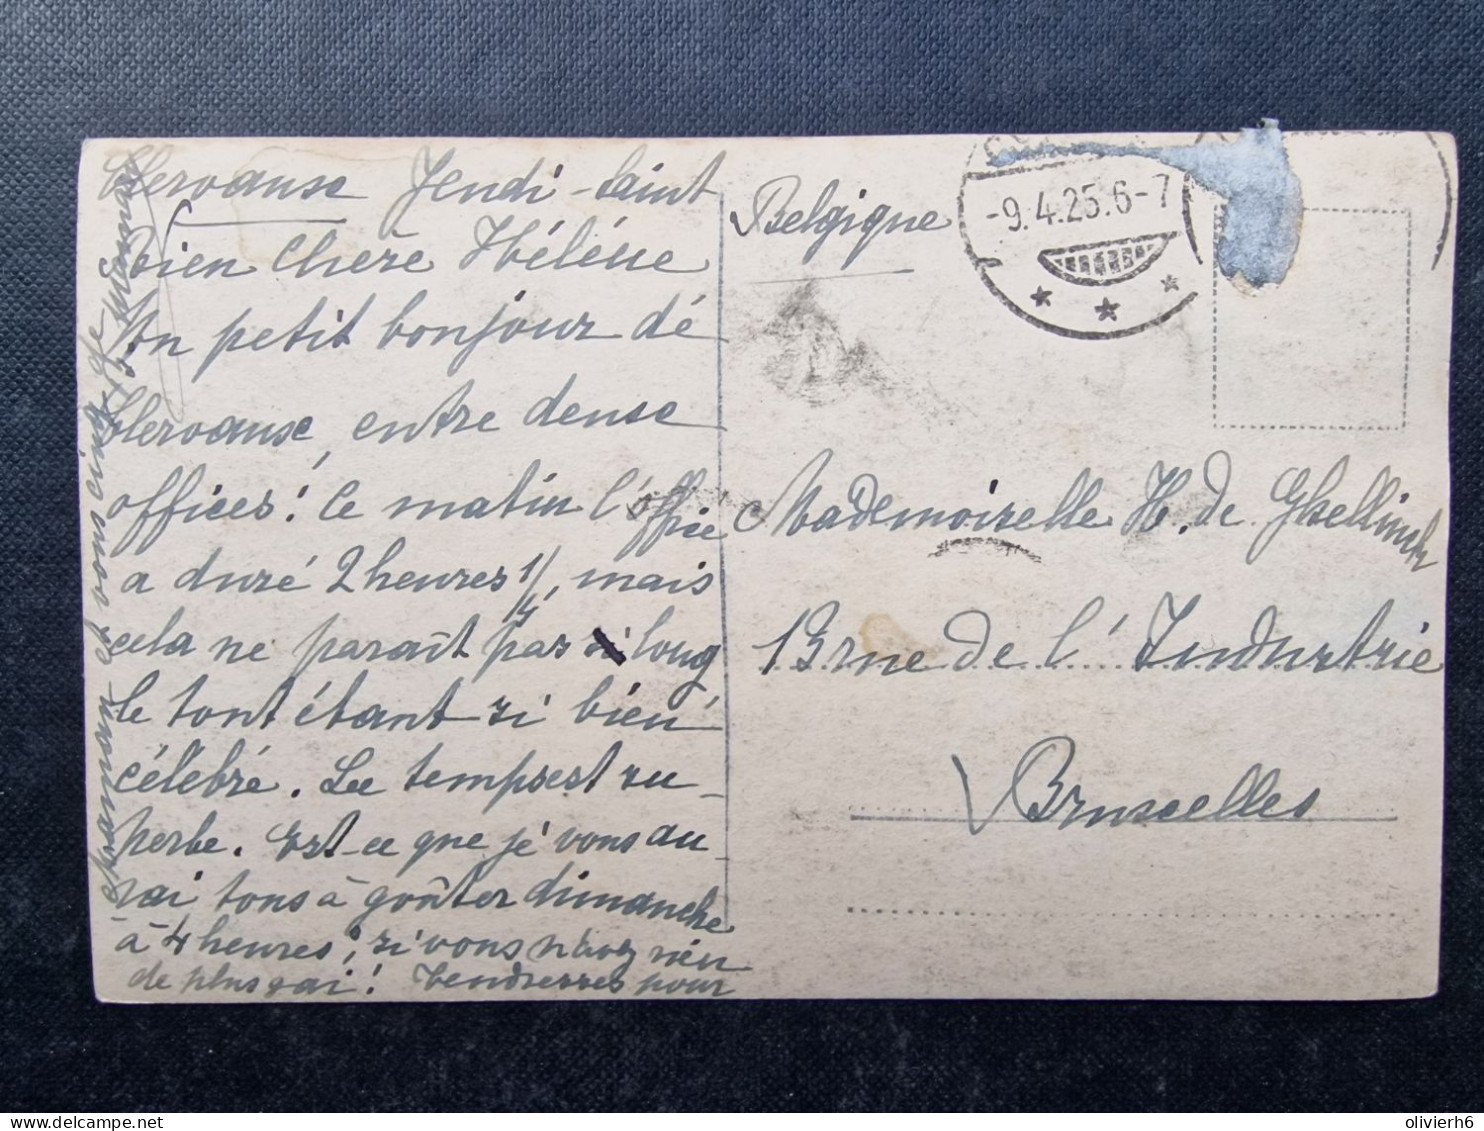 Clervaux Jeudi-Saint
bien chère Hélène
Un petit bonjour dé
Clervaux, entre deux
offices! Ce matin l'office
a duré 2 heures 1/4, mais
cela ne paraît pas si long
le tout étant si bien
célébré. Le temps est su-
perbe. Est-ce que je vous au-
rai tous à goûter dimanche
à 4 heures; si vous n'avez rien
de plus gai! Tendresses pour
maman et vous cinq de
Belgique
-9.4.25.6-7
Mademoiselle H. de Ghellinck
13 rue de l'Industrie
Bruxelles
olivierh6